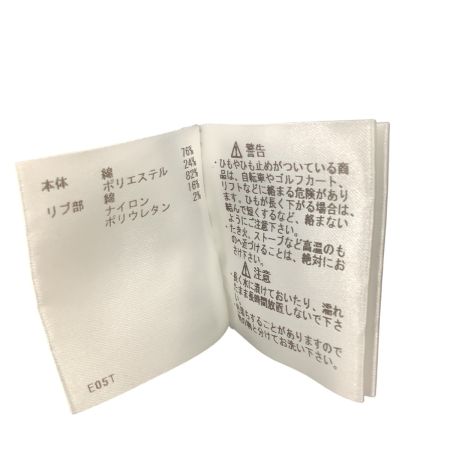 本体 綿 76%
ポリエステル 24%
リブ部 綿 82%
ナイロン 16%
ポリウレタン 2%
E05T
警告
・ひもやひも止めがついている商
品は、自転車やゴルフカート、
リフトなどに絡まる危険があり
ます。ひもが長く下がる場合は、
結んで短くするなど、絡まない
ようにご注意下さい。
・たき火、ストーブなど高温のも
のへ近づけることは、絶対にお
さけ下さい。
注意
・長く水に漬けておいたり、濡れ
たまま長時間放置しないで下さ
い。
することがありますので
と分けてお洗い下さい。